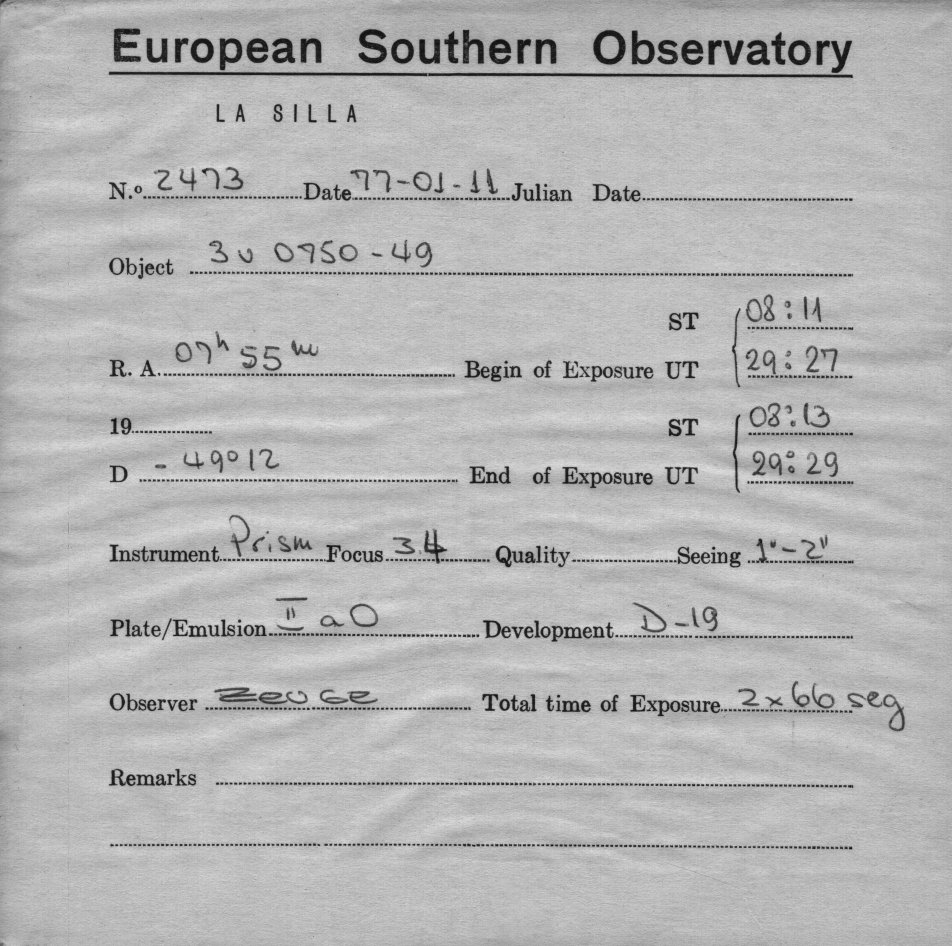 European Southern Observatory
LA SILLA
N.º 2473 Date 77-01-11 Julian Date
Object 3U 0750-49
ST 08:11
R. A. 07h 55m Begin of Exposure UT 29:27
19 ST 08:13
D -49°12 End of Exposure UT 29:29
Instrument Prism Focus 3.4 Quality Seeing 1"-2"
Plate/Emulsion II a O Development D-19
Observer Total time of Exposure 2x66 seg
Remarks